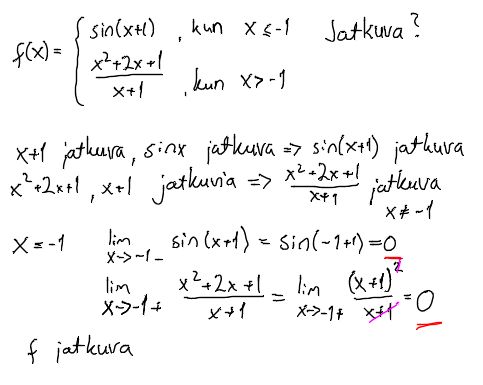 f(x) = { sin(x+1) , kun x ≤ -1 Jatkuva?
(x²+2x+1)/(x+1) , kun x > -1
x+1 jatkuva, sinx jatkuva => sin(x+1) jatkuva
x²+2x+1, x+1 jatkuvia => (x²+2x+1)/(x+1) jatkuva
x ≠ -1
x = -1 lim x→-1- sin(x+1) = sin(-1+1) = 0
lim x→-1+ (x²+2x+1)/(x+1) = lim x→-1+ (x+1)²/(x+1) = 0
f jatkuva